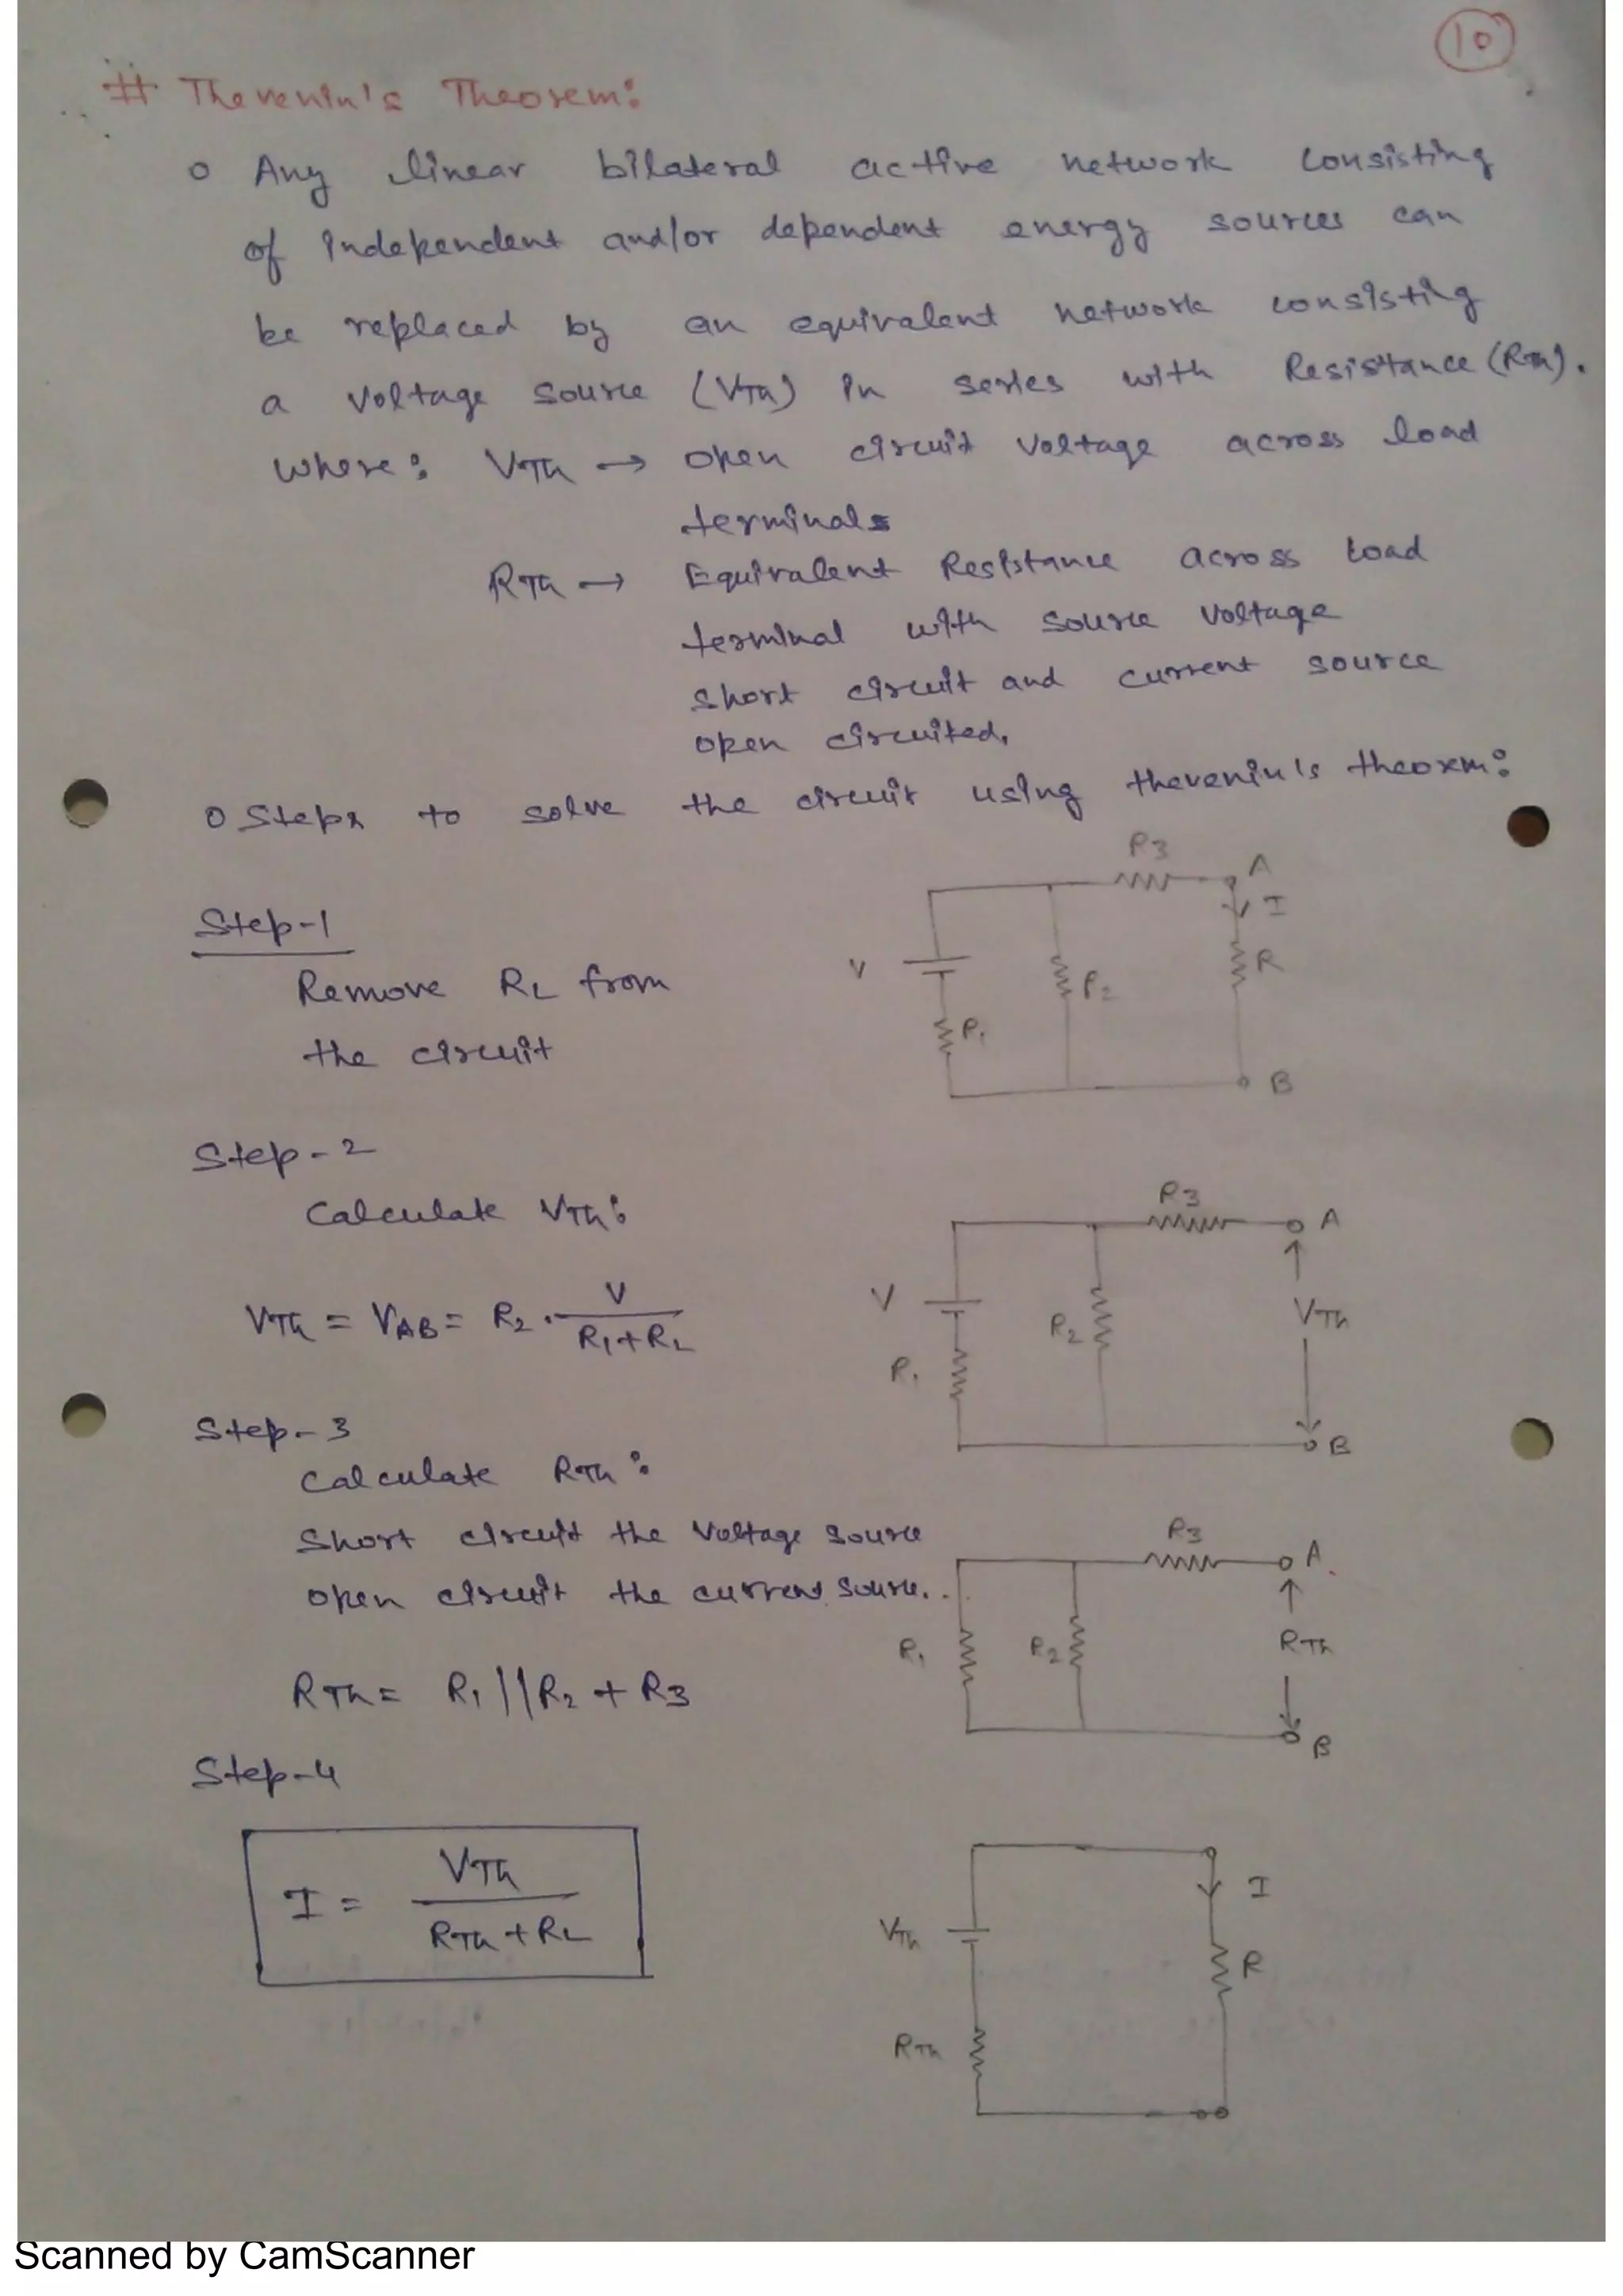 10
# Thevenin's Theorem:
o Any linear bilateral active network consisting
of independent and/or dependent energy sources can
be replaced by an equivalent network consisting
a voltage source (VTh) in series with Resistance (RTh).
where: VTh → open circuit voltage across load
terminals
RTh → Equivalent Resistance across load
terminal with source voltage
short circuit and current source
open circuited.
o Steps to solve the circuit using thevenin's theorem:
Step-1
Remove RL from
the circuit
R3
A
I
V
R2
R
R1
B
Step-2
Calculate VTh:
VTh = VAB = R2 . V / R1+RL
R3
A
V
R2
VTh
R1
B
Step-3
Calculate RTh:
Short circuit the voltage source
open circuit the current source.
RTh = R1 || R2 + R3
R3
A
R1
R2
RTh
B
Step-4
I = VTh / RTh + RL
I
VTh
R
RTh
Scanned by CamScanner